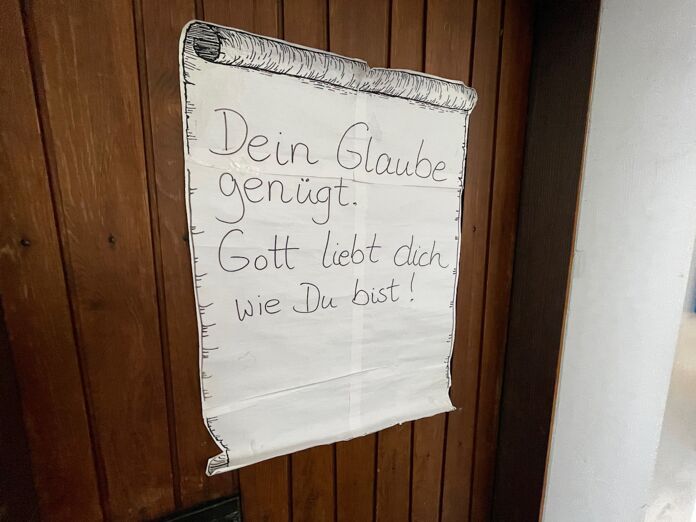 Dein Glaube
genügt.
Gott liebt dich
wie Du bist!